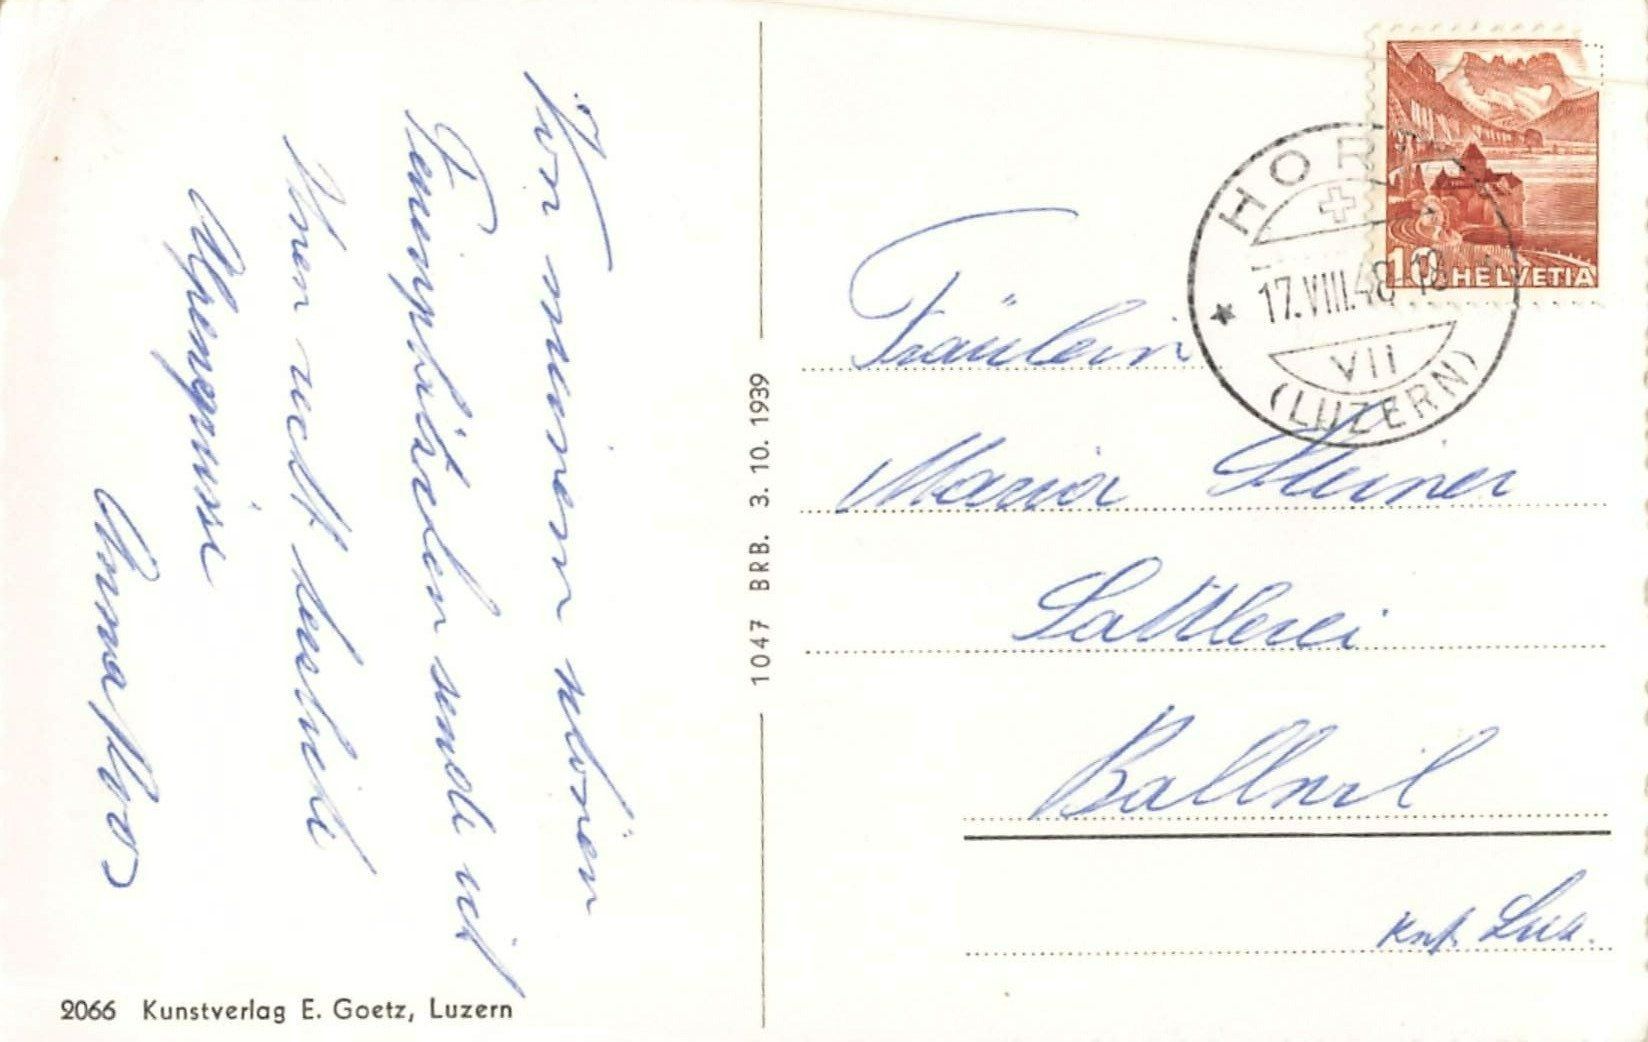 Von meinem schönen
Ferienplätzchen sende ich
Ihnen recht herzliche
Alpengrüsse
Anna
2066 Kunstverlag E. Goetz, Luzern
1047 BRB. 3. 10. 1939
HELVETIA
10
HORW
17.VIII.48-18
VII
(LUZERN)
Fräulein
Maria Steiner
Sattlerei
Ballwil
Knt. Luz.